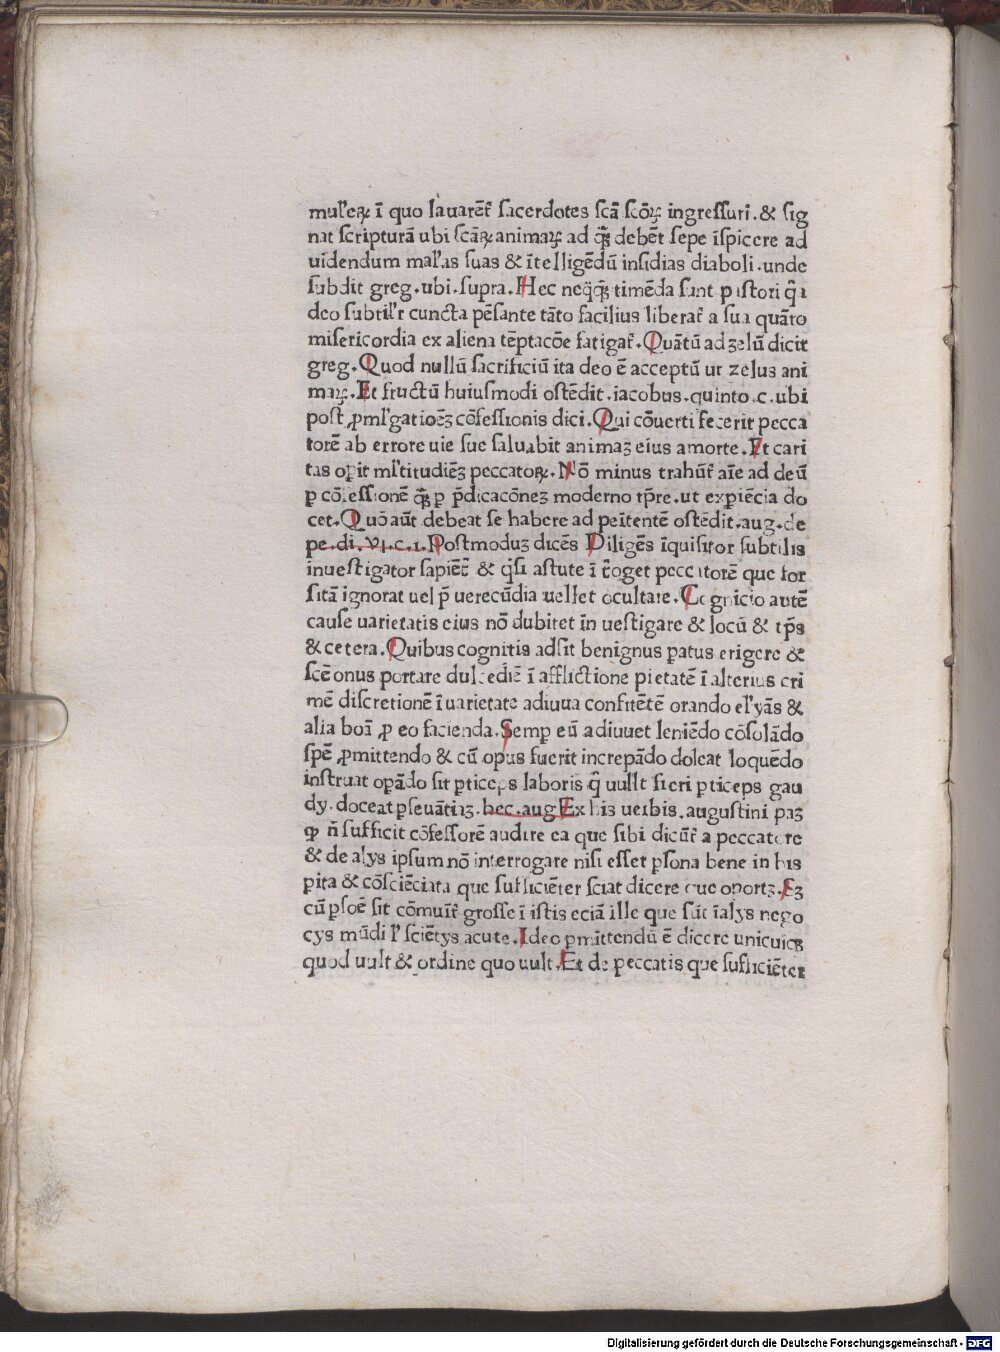 mulieꝝ ī quo lauarēt᷑ sacerdotes scā scōꝝ ingressuri. & sig
nat scripturā ubi scāꝝ animaꝝ ad qͣs debēt sepe īspicere ad
uidendum maĺas suas & ītelligēdū insidias diaboli. unde
subdit greg. ubi. supra. Hec neqͣꝗ timēda sūnt pastori qͣa
deo subtilr̄ cuncta pēsante tāto facilius liberat᷑ a sua quāto
misericordia ex aliena tēptacōe fatigat᷑. Quātū ad zelū dicit
greg. Quod nullū sacrificiū ita deo ē acceptū ut zelus ani
maꝝ. Et fructū huiusmodi ostēdit. iacobus. quinto. c. ubi
post ꝓml'gatioēꝫ cōfessionis dici. Qui cōuerti fecerit pecca
torē ab errore uie sue saluabit animaꝫ eius amorte. Et cari
tas opit ml'titudiēꝫ peccatoꝝ. Nō minus trahūt᷑ aīe ad deū
ꝑ cōfessionē qͣꝫ ꝑ p̄dicacōneꝫ moderno tp̄re. ut expiēcia do
cet. Quō aūt debeat se habere ad penitentē ostēdit. aug. de
pe. di. VI. c. 1. Postmoduꝫ dicēs Diligēs īquisitor subtilis
īnuestigator sapiēt᷑ & qͣsi astute ī t᷑roget peccatorē que for
sitā ignorat uel p̄ uerecūdia uellet occultare. Cognicio autē
cause uarietatis eius nō dubitet in uestigare & locū & tp̄s
& cetera. Quibus cognitis adsit benignus patus erigere &
scē onus portare dulcediē ī afflictione pietatē ī alterius cri
mē discretionē ī uarietate adiuua confitētē orando el'yās &
alia boā ꝓ eo facienda. Semꝑ eū adiuuet leniēdo cōsolādo
spē ꝓmittendo & cū opus fuerit increpādo doleat loquēdo
instruat opādo sit ꝑticeps laboris qͥ uult fieri ꝑticeps gau
dy. doceat ꝑseuātiaꝫ. hec. aug Ex his uerbis. augustini paꝫ
ꝙ n̄ sufficit cōfessorē audire ea que sibi dicūt᷑ a peccatore
& de alys ipsum nō interrogare nisi esset ꝑsona bene in his
pita & cōsciēciata que sufficiēter sciat dicere que oportꝫ. Eꝫ
cū ꝑsoē sit cōmuit᷑ grosse ī istis eciā ille que sūt īalys nego
cys mūdi l' sciētys acute. Ideo ꝑmittendū ē dicere unicuiqꝫ
quod uult & ordine quo uult. Et de peccatis que sufficiēter
Digitalisierung gefördert durch die Deutsche Forschungsgemeinschaft - DFG